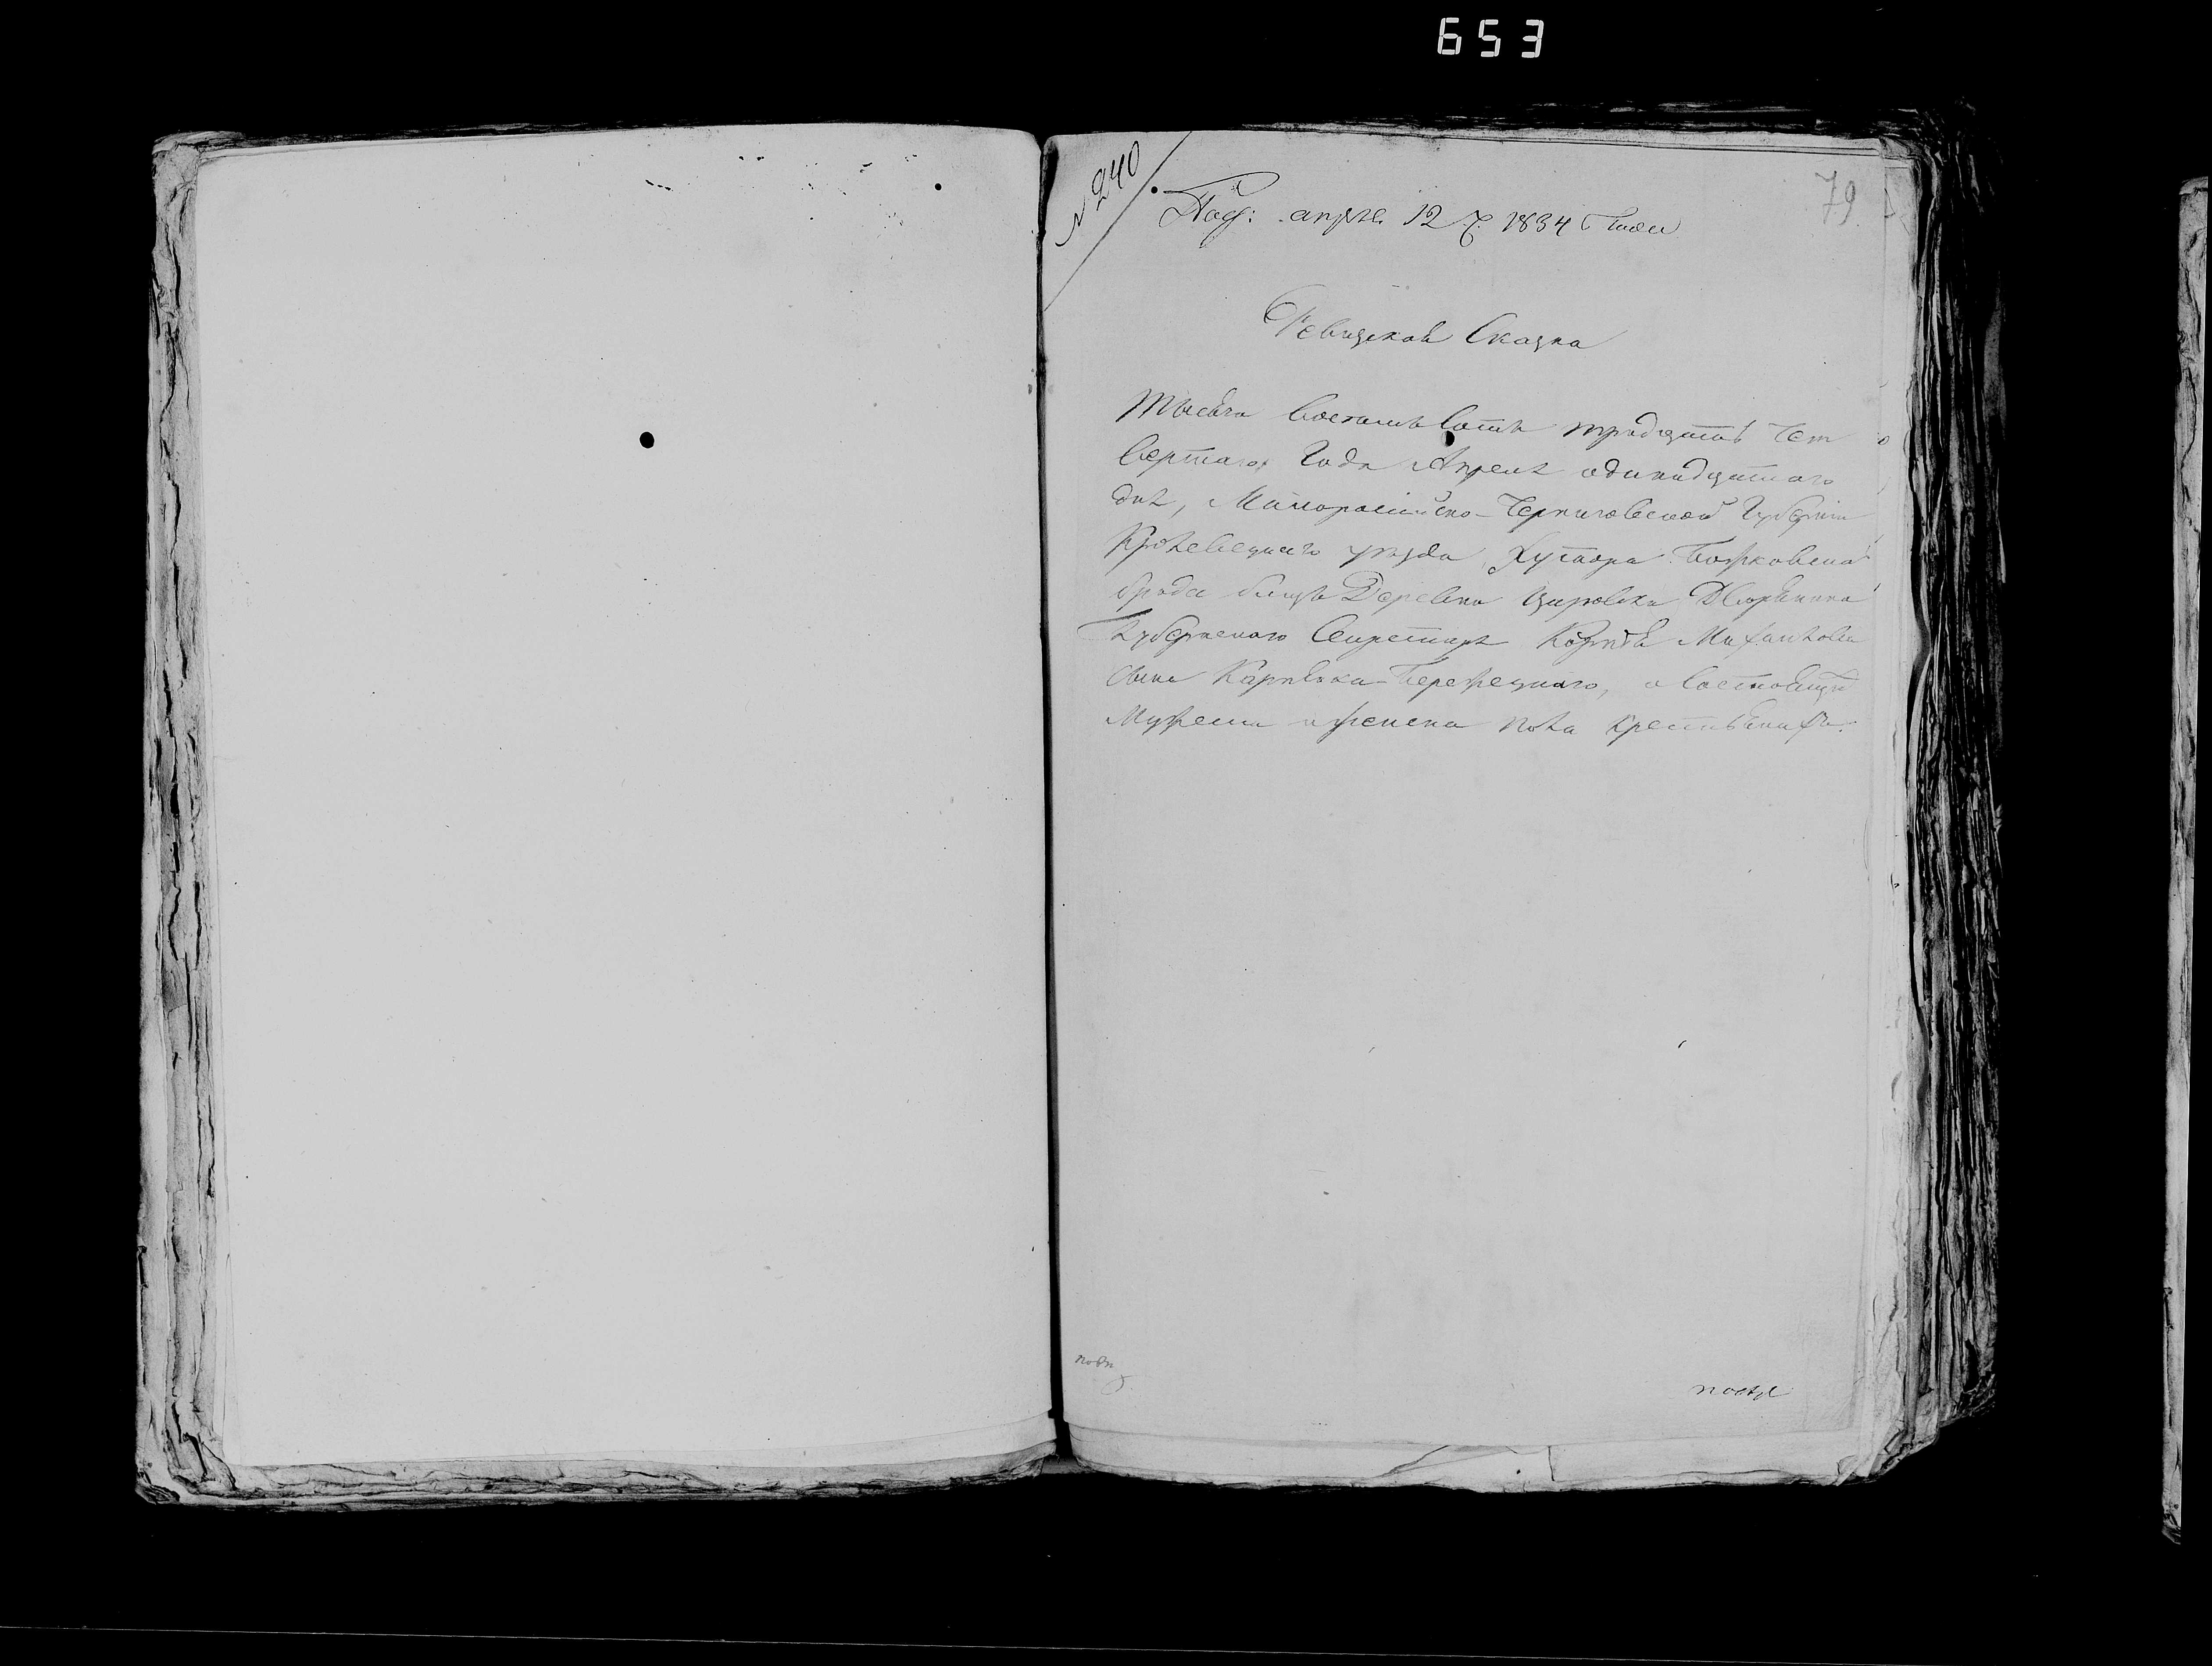 653
№ 240
79
Под: апреля 12 д. 1834 Года
Ревизская Сказка
Тысяча восемь сотъ тридцать чет
вертаго Года Апреля одинадцатаго
дня, Малоросийско-Черниговской Губернии
Кролевецкаго уезда Хутора Божковскаго
брода близь Деревни Царовки Дворянина
Губернскаго Секретаря Михайлова
сына Карпеки-Бережецкаго, о состоящихъ
Мужеска и женска пола крестьянахъ.